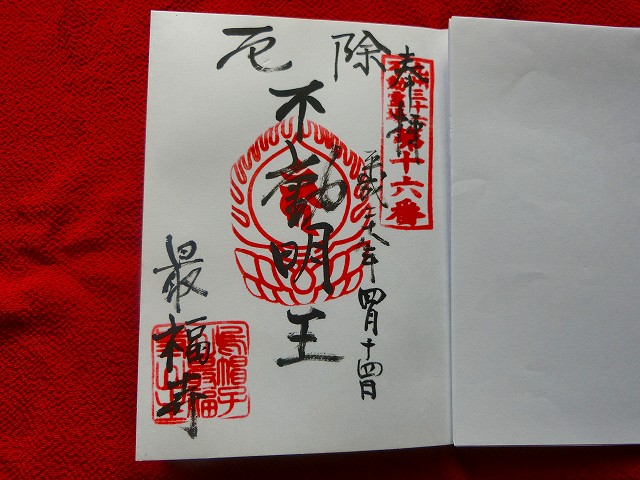 除厄
奉拝
第十六番
平成二十八年四月十四日
不動明王
最福寺